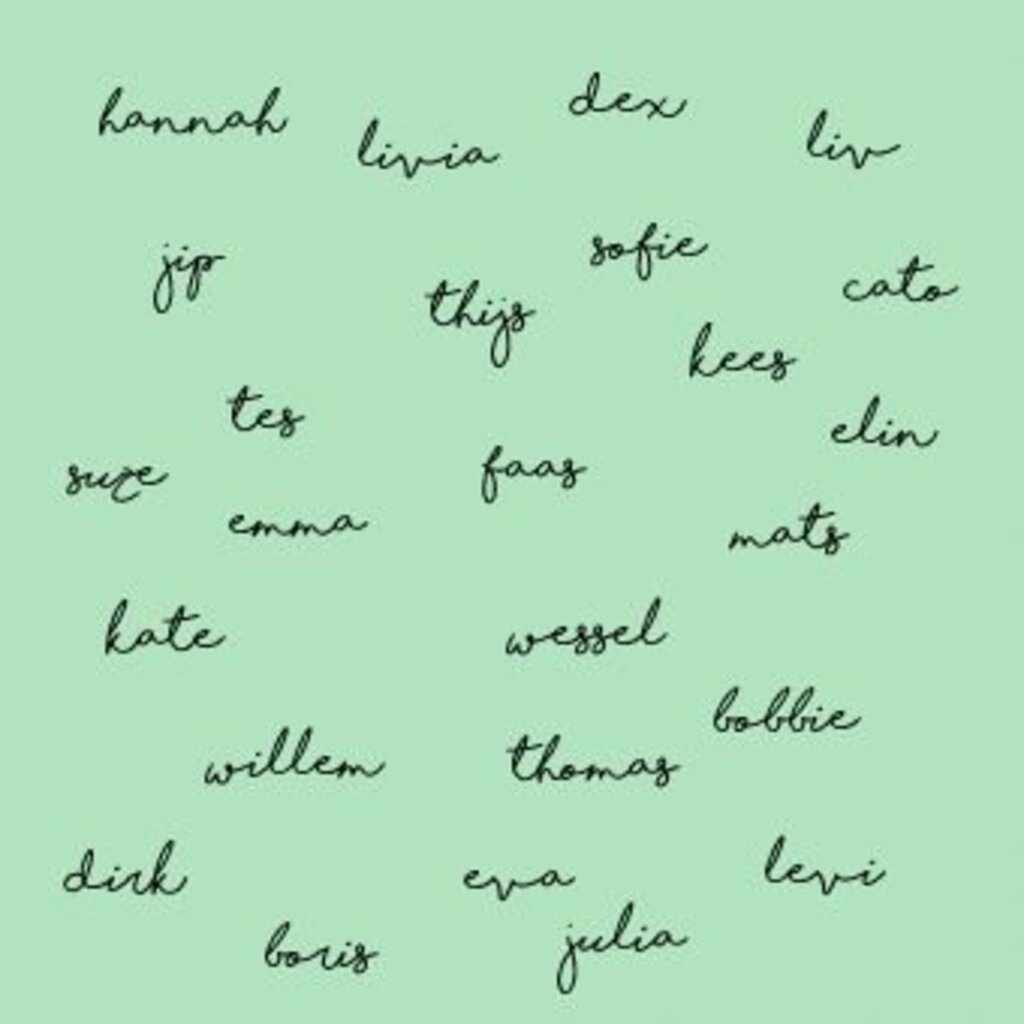 hannah
livia
dex
liv
jip
sofie
thijs
cato
kees
tes
elin
suze
faas
emma
mats
kate
wessel
bobbie
willem
thomas
dirk
eva
levi
boris
julia